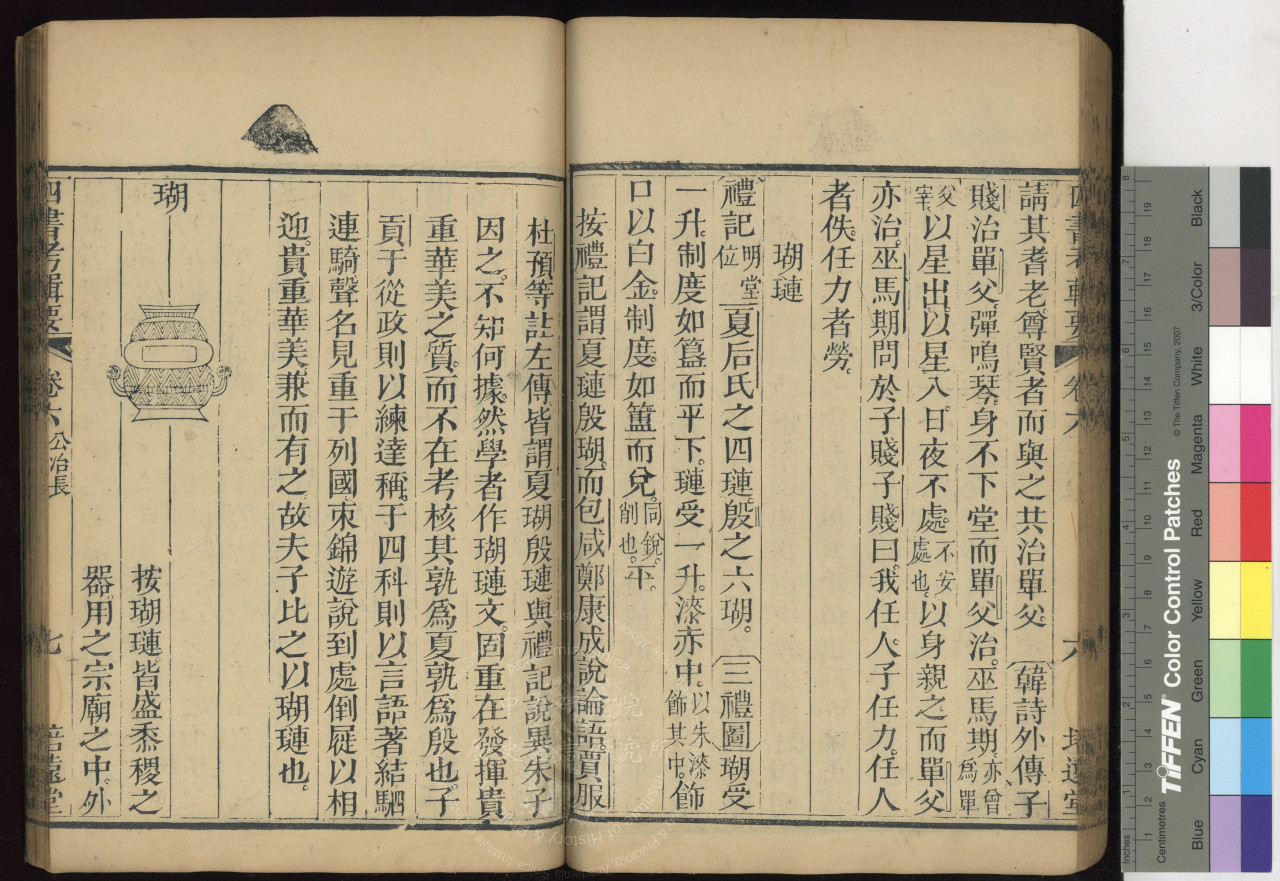 請其耆老尊賢者而與之共治單父。〔韓詩外傳〕子
賤治單父。彈鳴琴。身不下堂而單父治。巫馬期亦曾爲單
父宰。以星出。以星入。日夜不處。不安處也。以身親之而單父
亦治。巫馬期問於子賤子賤曰。我任人。子任力。任人
者佚。任力者勞。
瑚璉
〔禮記明堂位〕夏后氏之四璉。殷之六瑚。〔三禮圖〕瑚受
一升。制度如簋而平下。璉受一升。漆赤中。以朱漆飾其中。飾
口以白金。制度如簠而兌。同銳削也。下。
按禮記謂夏璉殷瑚。而包咸鄭康成說論語。賈服
杜預等註左傳皆謂夏瑚殷璉。與禮記說異朱子
因之。不知何據。然學者作瑚璉文。固重在發揮貴
重華美之質。而不在考核其孰爲夏孰爲殷也。子
貢于從政則以練達稱。于四科則以言語著結駟
連騎聲名見重于列國。束錦遊說到處倒屣以相
迎。貴重華美兼而有之故夫子比之以瑚璉也。
瑚
按瑚璉。皆盛黍稷之
器。用之宗廟之中。外
四書考輯要 卷六 公冶長 七 培遠堂
四書考輯要 卷六 六 培遠堂
Inches
Centimetres
TIFFEN Color Control Patches
© The Tiffen Company, 2007
Blue
Cyan
Green
Yellow
Red
Magenta
White
3/Color
Black